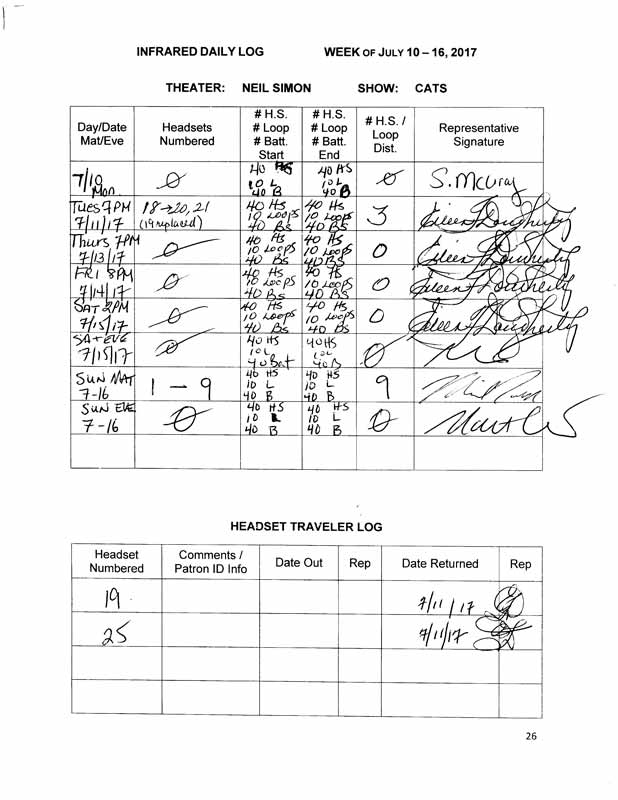 INFRARED DAILY LOG WEEK OF JULY 10 – 16, 2017
THEATER: NEIL SIMON SHOW: CATS
Day/Date Mat/Eve
Headsets Numbered
# H.S. # Loop # Batt. Start
# H.S. # Loop # Batt. End
# H.S. / Loop Dist.
Representative Signature
7/10 Mon Ø 40 HS 10 L 40 B 40 HS 10 L 40 B Ø
Tues 7PM 7/11/17 18→20, 21 (19 replaced) 40 HS 10 Loops 40 Bs 40 HS 10 Loops 40 Bs 3 Eileen Dougherty
Thurs 7PM 7/13/17 Ø 40 HS 10 Loops 40 Bs 40 HS 10 Loops 40 Bs 0 Eileen Dougherty
FRI 8PM 7/14/17 Ø 40 HS 10 Loops 40 Bs 40 HS 10 Loops 40 Bs 0 Eileen Dougherty
SAT 2PM 7/15/17 Ø 40 HS 10 Loops 40 Bs 40 HS 10 Loops 40 Bs 0 Eileen Dougherty
SAT EVE 7/15/17 Ø 40 HS 10 L 40 Bat 40 HS 10 L 40 B Ø
SUN MAT 7-16 1 – 9 40 HS 10 L 40 B 40 HS 10 L 40 B 9
SUN EVE 7-16 Ø 40 HS 10 L 40 B 40 HS 10 L 40 B Ø
HEADSET TRAVELER LOG
Headset Numbered
Comments / Patron ID Info
Date Out
Rep
Date Returned
Rep
19 7/11/17
25 7/11/17
26